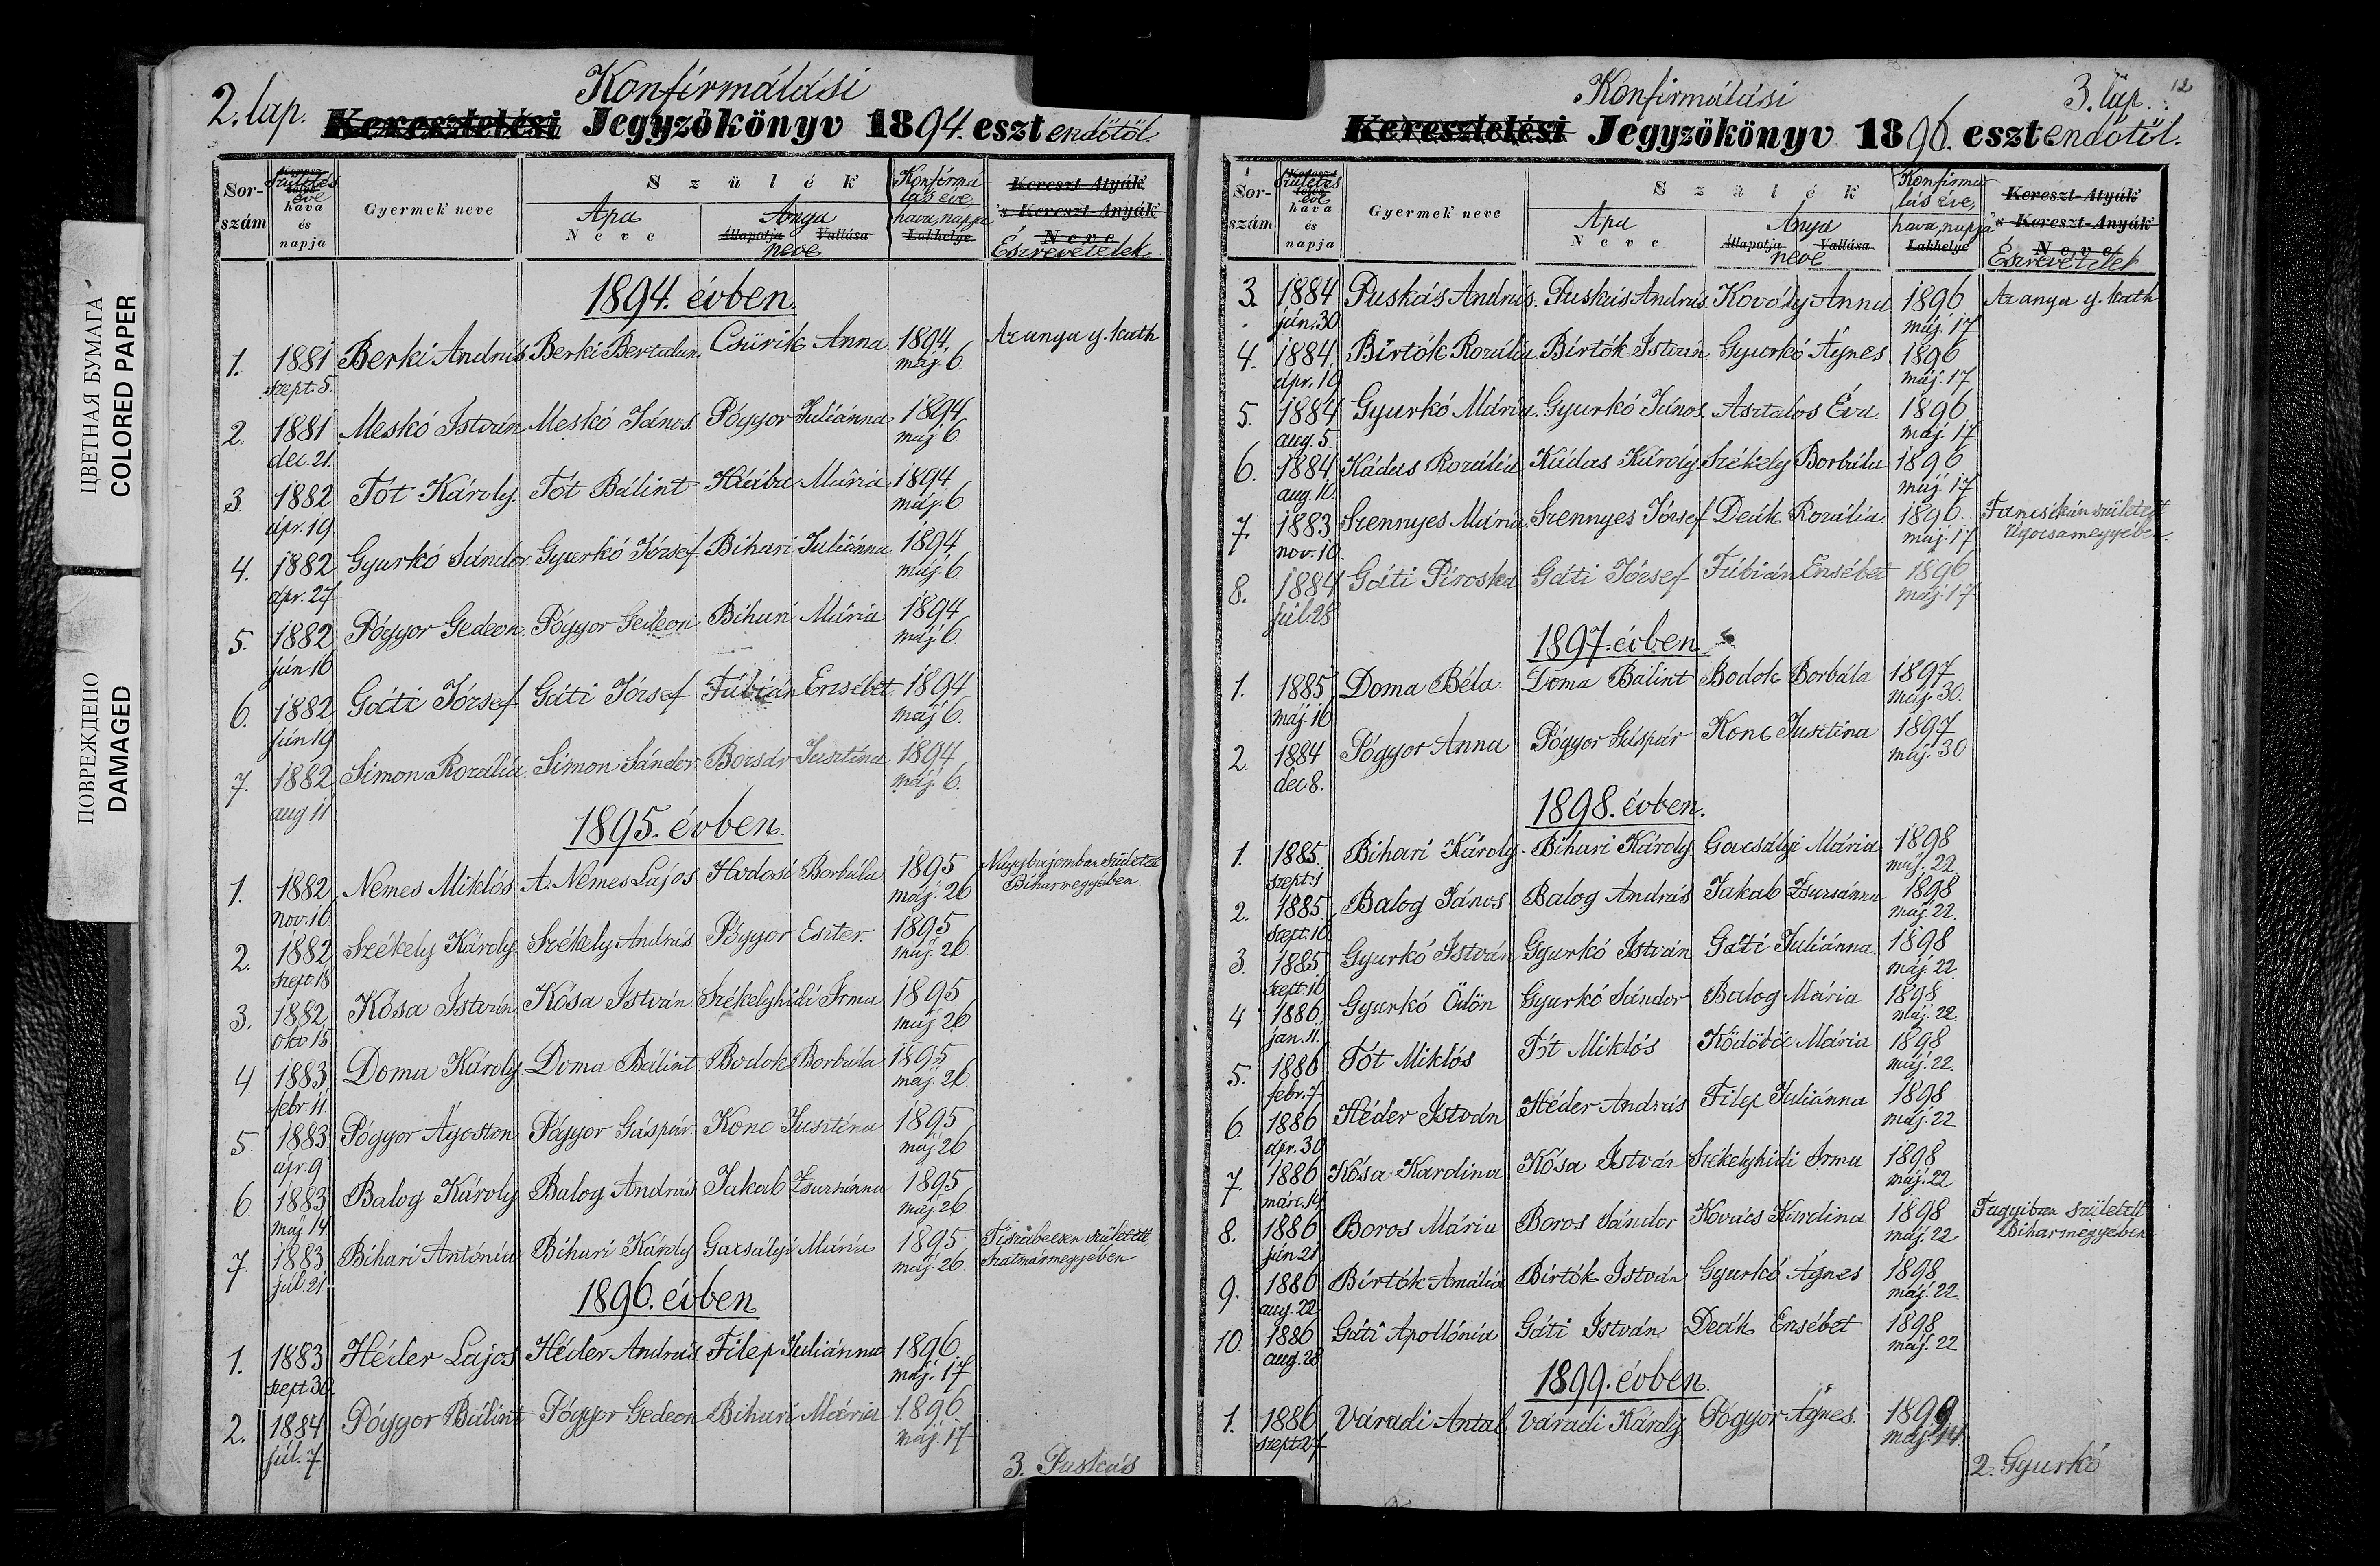 ЦВЕТНАЯ БУМАГА
COLORED PAPER
ПОВРЕЖДЕНО
DAMAGED
2. lap.
Konfirmálási
Keresztelési Jegyzőkönyv 1894. esztendőtől.
Sor-szám
Születés éve hava és napja
Gyermek neve
Szülék
Apa Neve
Anya Állapotja Vallása neve
Konfirmálás éve, hava, napja Lakhelye
Kereszt-Atyák 's Kereszt-Anyák Neve Észrevételek
1894. évben.
1. 1881 szept. 5. Berki András Berki Bertalan Csürik Anna 1894. máj. 6. Az anya g. kath
2. 1881 dec. 21. Meskó István Meskó János Pógyor Juliánna 1894. máj 6
3. 1882 ápr. 19 Tót Károly Tót Bálint Hiába Mária 1894 máj. 6
4. 1882 ápr. 27 Gyurkó Sándor Gyurkó József Bihari Juliánna 1894 máj. 6
5. 1882 jún 16 Pógyor Gedeon Pógyor Gedeon Bihari Mária 1894 máj 6.
6. 1882 jún 19 Gáti József Gáti József Fábián Erzsébet 1894 máj 6.
7. 1882 aug 11 Simon Rozália Simon Sándor Borsár Jusztina 1894 máj. 6.
1895. évben.
1. 1882 nov. 10 Nemes Miklós A. Nemes Lajos Hodosi Borbála 1895 máj. 26 Nagybajomban született Biharmegyében.
2. 1882 szept. 18 Székely Károly Székely András Pógyor Eszter. 1895 máj. 26
3. 1882 okt. 15 Kósa István Kósa István Székelyhidi Irma 1895 máj 26
4 1883 febr. 11. Doma Károly Doma Bálint Bodok Borbála 1895 máj. 26.
5. 1883. ápr. 9. Pógyor Ágoston Pógyor Gáspár Konc Jusztina 1895 máj. 26
6. 1883 máj 14. Balog Károly Balog András Jakab Zsuzsánna 1895 máj. 26.
7 1883. júl. 21. Bihari Antónia Bihari Károly Gacsályi Mária 1895 máj. 26. Tiszabecsen született Szatmármegyében
1896. évben
1. 1883 szept 30. Héder Lajos Héder András Filep Juliánna 1896. máj. 17
2. 1884 júl. 7 Pógyor Bálint Pógyor Gedeon Bihari Mária 1896 máj. 17
3. Puskás
Konfirmálási
3. lap.
12
Keresztelési Jegyzőkönyv 1896. esztendőtől.
Sor-szám
Születés éve hava és napja
Gyermek neve
Szülék
Apa Neve
Anya Állapotja Vallása neve
Konfirmálás éve, hava, napja Lakhelye
Kereszt-Atyák 's Kereszt-Anyák Neve Észrevételek
3. 1884 jún. 30 Puskás András. Puskás András Kovály Anna 1896 máj. 17 Az anya g. kath
4. 1884. ápr. 19 Birtók Rozália Birtók István Gyurkó Ágnes 1896 máj. 17
5. 1884 aug. 5. Gyurkó Mária. Gyurkó János Asztalos Éva. 1896 máj. 17
6. 1884 aug. 10. Kádas Rozália Kádas Károly Székely Borbála 1896 máj. 17
7. 1883 nov. 10. Szennyes Mária Szennyes József Deák Rozália. 1896 máj. 17 Fancsikán született Ugocsamegyében.
8. 1884 júl. 28 Gáti Piroska Gáti József Fábián Erzsébet 1896 máj. 17
1897. évben
1. 1885 máj. 16 Doma Béla Doma Bálint Bodok Borbála 1897 máj. 30.
2. 1884 dec 8. Pógyor Anna Pógyor Gáspár Konc Jusztina 1897 máj. 30
1898. évben.
1. 1885. szept. 1 Bihari Károly. Bihari Károly Gacsályi Mária 1898 máj. 22.
2. 1885. szept. 10. Balog János Balog András Jakab Zsuzsánna 1898 máj. 22.
3. 1885 szept. 16 Gyurkó István Gyurkó István Gáti Juliánna 1898 máj. 22.
4 1886. jan. 11. Gyurkó Ödön Gyurkó Sándor Balog Mária 1898 máj. 22.
5. 1886 febr. 7 Tót Miklós Tót Miklós Ködöböc Mária 1898 máj. 22.
6. 1886 ápr. 30 Héder István Héder András Filep Juliánna 1898 máj. 22
7. 1886 márc. 14 Kósa Karolina Kósa István Székelyhidi Irma 1898 máj. 22
8. 1886 jún 21 Boros Mária Boros Sándor Kovács Karolina 1898 máj. 22 Fugyiban született Biharmegyében
9. 1886 aug. 22 Birtók Amália Birtók István Gyurkó Ágnes 1898 máj. 22.
10. 1886 aug. 28 Gáti Apollónia Gáti István Deák Erzsébet 1898 máj. 22
1899. évben
1. 1886 szept. 27. Váradi Antal Váradi Károly Pógyor Ágnes. 1899 máj. 14.
2. Gyurkó